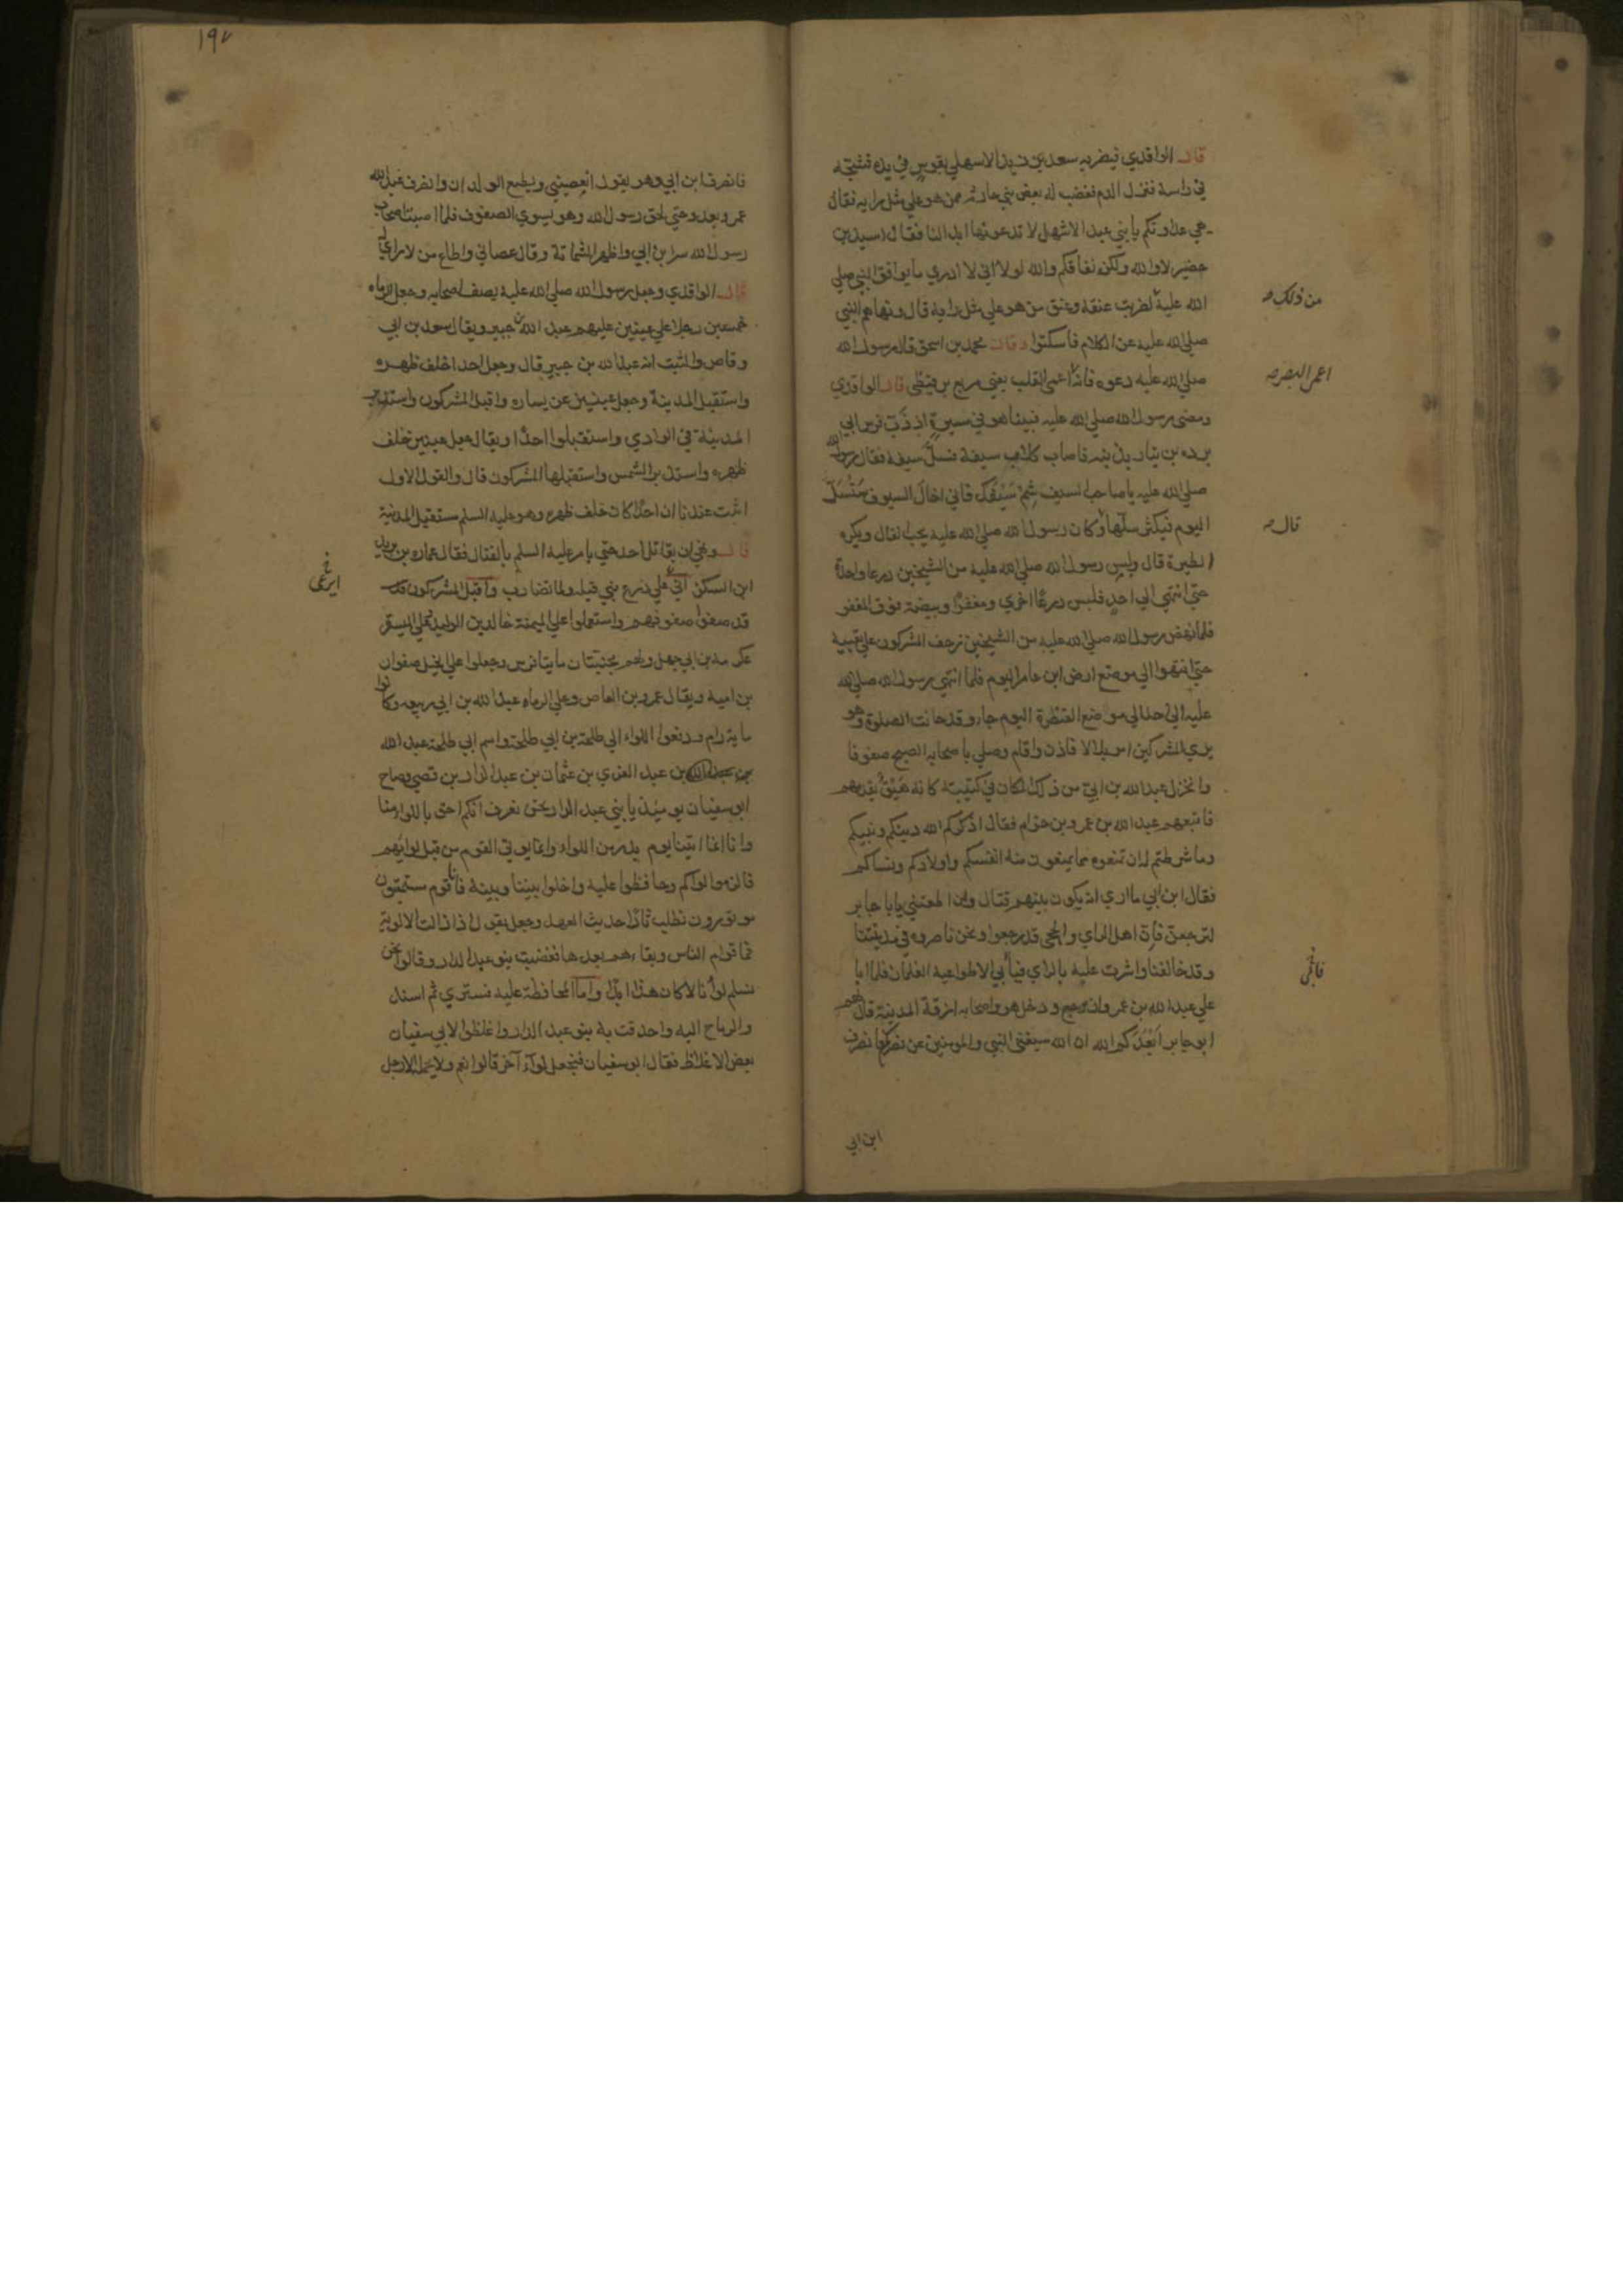 قال الواقدي فيضربه سعد بن زيد الاسهلي بقوس في يده فشجه
في راسه فنزل الدم فغضب له بعض بني حارثه ممن هو علي مثل رايه فقال
هي عداوتكم يا بني عبد الاشهل لا تدعونها ابدا لنا فقال اسيد بن
حضير لا والله ولكنه نفاقكم والله لولا اني لا ادري ما يوافق النبي صلي
من ذلك
الله عليه لضربت عنقه وعنق من هو علي مثل رايه قال ونهاهم النبي
صلي الله عليه عن الكلام فاسكتوا وقال محمد بن اسحق قال رسول الله
اعمى البصر
صلي الله عليه دعوه فانه اعمى القلب يعني مربع بن قيظي قال الواقدي
ومضى رسول الله صلي الله عليه فبينا هو في مسيره اذ ذب فرس ابي
برده بن نيار بذنبه فاصاب كلاب سيفه فسل سيفه فقال رسول الله
صلي الله عليه يا صاحب السيف شم سيفك فاني اخال السيوف ستسل
قال
اليوم فيكثر سلها وكان رسول الله صلي الله عليه يحب الفال ويكره
الطيرة قال ولبس رسول الله صلي الله عليه من الشيخين درعا واحدة
حتى انتهى الي احد فلبس درعا اخري ومغفرا وبيضة فوق المغفر
فلما نهض رسول الله صلي الله عليه من الشيخين زحف المشركون علي تعبية
حتي انتهوا الي موضع ارض ابن عامر اليوم فلما انتهى رسول الله صلي الله
عليه الي احد الي موضع القنطرة اليوم جاء وقد حانت الصلوة وهو
يري المشركين امر بلالا فاذن واقام وصلي باصحابه الصبح صفوفا
وانخزل عبد الله بن ابي من ذلك المكان في كتيبته كانه هيق يقدمهم
فاتبعهم عبد الله بن عمرو بن حزام فقال اذكركم الله دينكم ونبيكم
وما شرطتم له ان تمنعوه مما تمنعون منه انفسكم واولادكم ونساكم
فقال ابن ابي ما اري انه يكون بينهم قتال ولئن اطعتني يا با جابر
لترجعن فان اهل الراي والحجى قد رجعوا ونحن ناصروه في مدينتنا
وقد خالفنا واشرت عليه بالراي فيأبي الا طواعية الغلمان فلما ابا
علي عبد الله بن عمرو ان يرجع ودخل هو واصحابه ازقة المدينة قال لهم
ابو جابر ابعدكم الله ان الله سيغني النبي والمومنين عن نصركم فانصرف
ابن ابي
١٩٧
فانصرف ابن ابي وهو يقول ايعصيني ويطيع الولدان وانصرف عبد الله
عمرو يعدو حتي لحق رسول الله وهو يسوي الصفوف فلما اصيب اصحاب
رسول الله سر ابن ابي واظهر الشماتة وقال عصاني واطاع من لا راي له
قال الواقدي وجعل رسول الله صلي الله عليه يصف اصحابه وجعل الرماه
خمسين رجلا علي عينين عليهم عبد الله بن جبير ويقال سعد بن ابي
وقاص والثبت انه عبد الله بن جبير قال وجعل احدا خلف ظهره
واستقبل المدينة وجعل عينين عن يساره واقبل المشركون واستدبروا
المدينة في الوادي واستقبلوا احدا ويقال جعل عينين خلف
ظهره واستدبر الشمس واستقبلها المشركون قال والقول الاول
اثبت عندنا ان احدا كان خلف ظهره وهو عليه السلم مستقبل المدينة
قال ونهى ان يقاتل احد حتي يامر عليه السلم بالقتال فقال عماره بن يزيد
ابن السكن اني علي زرع بني قيله ولما نضارب واقبل المشركون قد
قد صفوا صفوفهم واستعملوا علي الميمنة خالد بن الوليد وعلي الميسره
عكرمه بن ابي جهل ولهم مجنبتان مايتا فرس وجعلوا علي الخيل صفوان
بن اميه ويقال عمرو بن العاص وعلي الرماه عبد الله بن ابي ربيعه وكانوا
ماية رام ودفعوا اللواء الي طلحة بن ابي طلحة واسم ابي طلحة عبد الله
بن عبد العزي بن عثمان بن عبد الدار بن قصي وصاح
ابو سفيان يوميذ يا بني عبد الدار نحن نعرف انكم احق باللواء منا
وانا انما اتينا يوم بدر من اللواء وانما يوتى القوم من قبل لوائهم
فالزموا لواكم وحافظوا عليه واخلوا بيننا وبينه فانا قوم مستميتون
موتورون نطلب ثارا حديث العهد وجعل يقول اذا زالت الالوية
فما قوام الناس وبقاءهم بعدها فغضبت بنو عبد الدار وقالوا نحن
نسلم لواءنا لا كان هذا ابدا واما المحافظة عليه فستري ثم اسند
والرماح اليه واحدقت به بنو عبد الدار واغلظوا لابي سفيان
بعض الاغلاظ فقال ابو سفيان فنجعل لواء آخر قالوا نعم ولا يحمله الا رجل